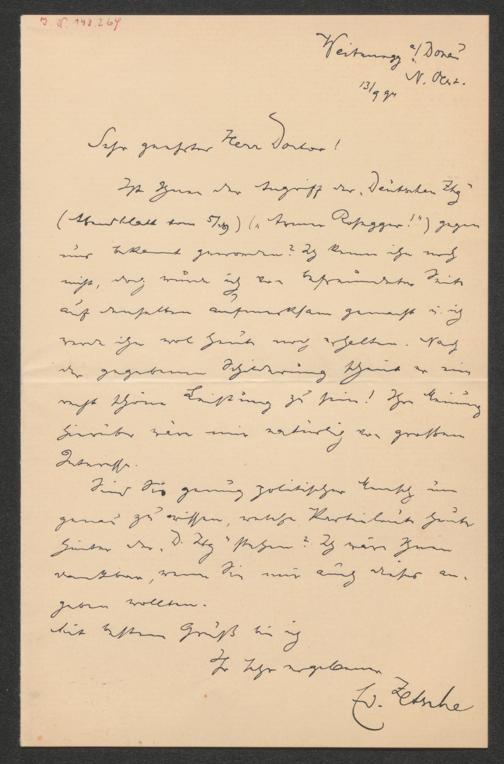 J. N. 148.269
Weitenegg a/Donau
N. Oest.
13/9 94
Sehr geehrter Herr Doctor!
Ist Ihnen der Angriff der „Deutschen Ztg"
(Abendblatt vom 5/9) („Armer Rosegger!") gegen
mich bekannt geworden? Ich kenne ihn noch
nicht, doch wurde ich von befreundeter Seite
auf denselben aufmerksam gemacht u. ich
werde ihn wol heute noch erhalten. Nach
der gegebenen Schilderung scheint er eine
recht schöne Leistung zu sein! Ihre Meinung
hierüber wäre mir natürlich von grossem
Interesse.
Sind Sie genug politischer Mensch um
genau zu wissen, welche Parteileute heute
hinter der „D. Ztg" stehen? Ich wäre Ihnen
dankbar, wenn Sie mir auch dieses an-
geben wollten.
Mit bestem Gruß bin ich
Ihr sehr ergebener
Ed. Zetsche